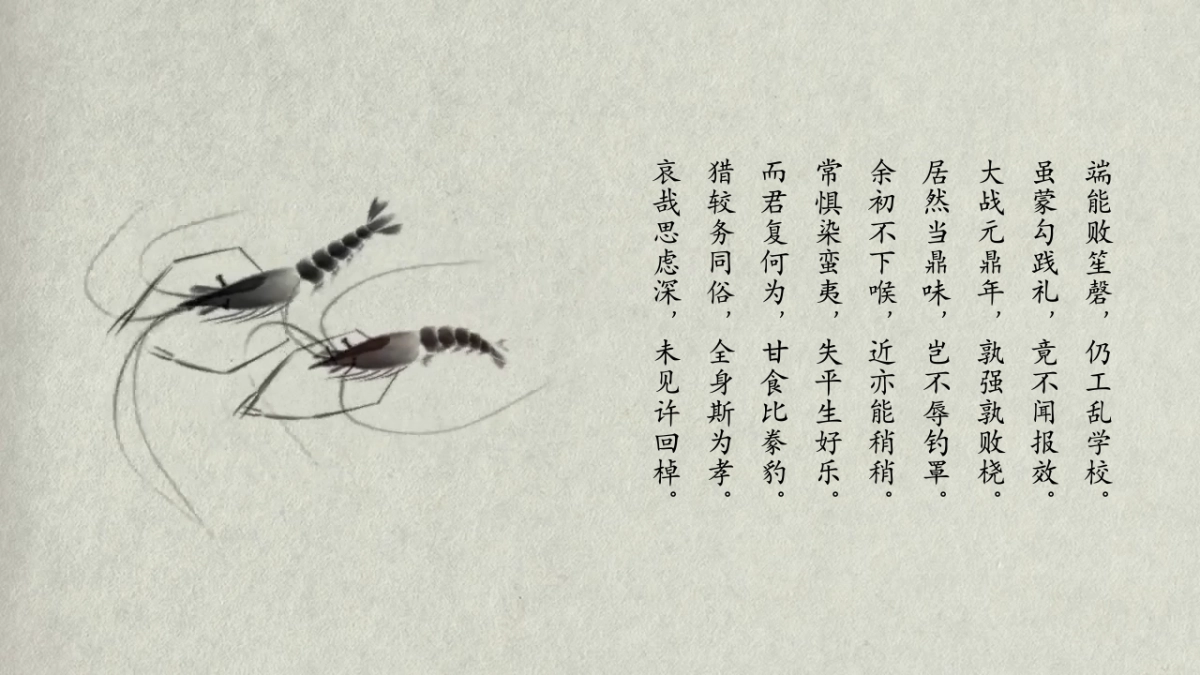 端能败笙磬，仍工乱学校。
虽蒙勾践礼，竟不闻报效。
大战元鼎年，孰强孰败桡。
居然当鼎味，岂不辱钓罩。
余初不下喉，近亦能稍稍。
常惧染蛮夷，失平生好乐。
而君复何为，甘食比豢豹。
猎较务同俗，全身斯为孝。
哀哉思虑深，未见许回棹。